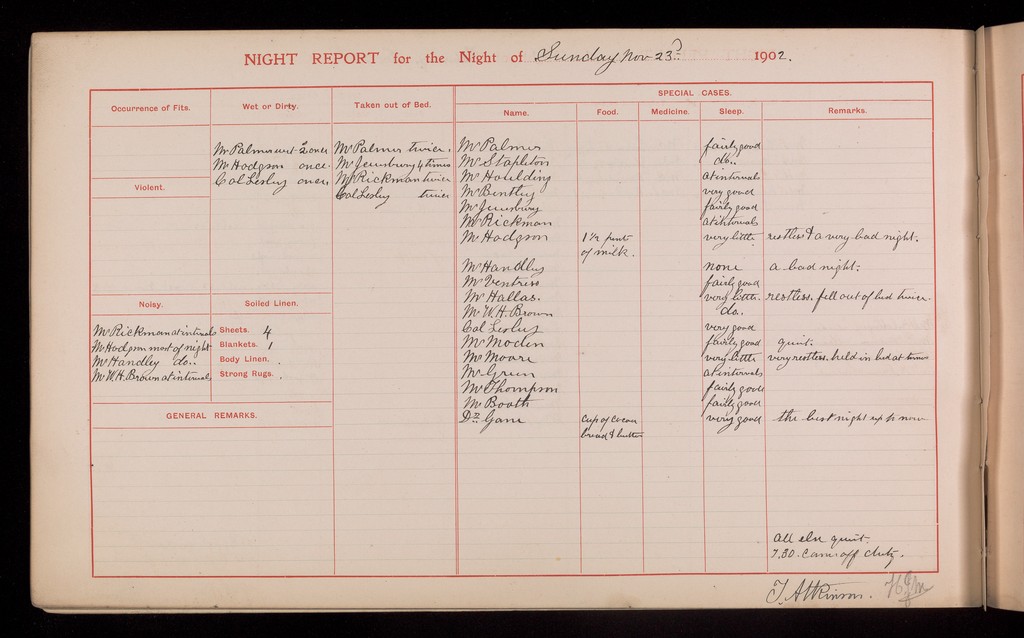 NIGHT REPORT for the Night of Sunday Nov 23rd 1902.
Occurrence of Fits.
Wet or Dirty.
Taken out of Bed.
SPECIAL CASES.
Name. Food. Medicine. Sleep. Remarks.
Mr Palmer wet 2 once
Mr Hodgson once
Col Lesley once
Mr Palmer twice.
Mr Jewsbury 4 times
Mr Rickman twice
Col Lesley twice
Violent.
Noisy.
Mr Rickman at intervals
Mr Hodgson most of night
Mr Handley do..
Mr W.H. Brown at intervals
Soiled Linen.
Sheets. 4
Blankets. 1
Body Linen. .
Strong Rugs. .
GENERAL REMARKS.
Mr Palmer fairly good
Mr Stapleton do..
Mr Houlding at intervals
Mr Bentley very good
Mr Jewsbury fairly good
Mr Rickman at intervals
Mr Hodgson 1 1/2 pints very little restless & a very bad night.
of milk.
Mr Handley none a bad night.
Mr Ventress fairly good
Mr Hallas. very little. restless. fell out of bed twice
Mr W.H. Brown do.
Col Lesley very good
Mr Moden fairly good quiet.
Mr Moore very little very restless. held in bed at times
Mr Green at intervals
Mr Thompson fairly good
Mr Booth fairly good
Dr Gane cup of cocoa very good the best night up to now
bread & butter
all else quiet.
7.30. came off duty.
T. Atkinson.